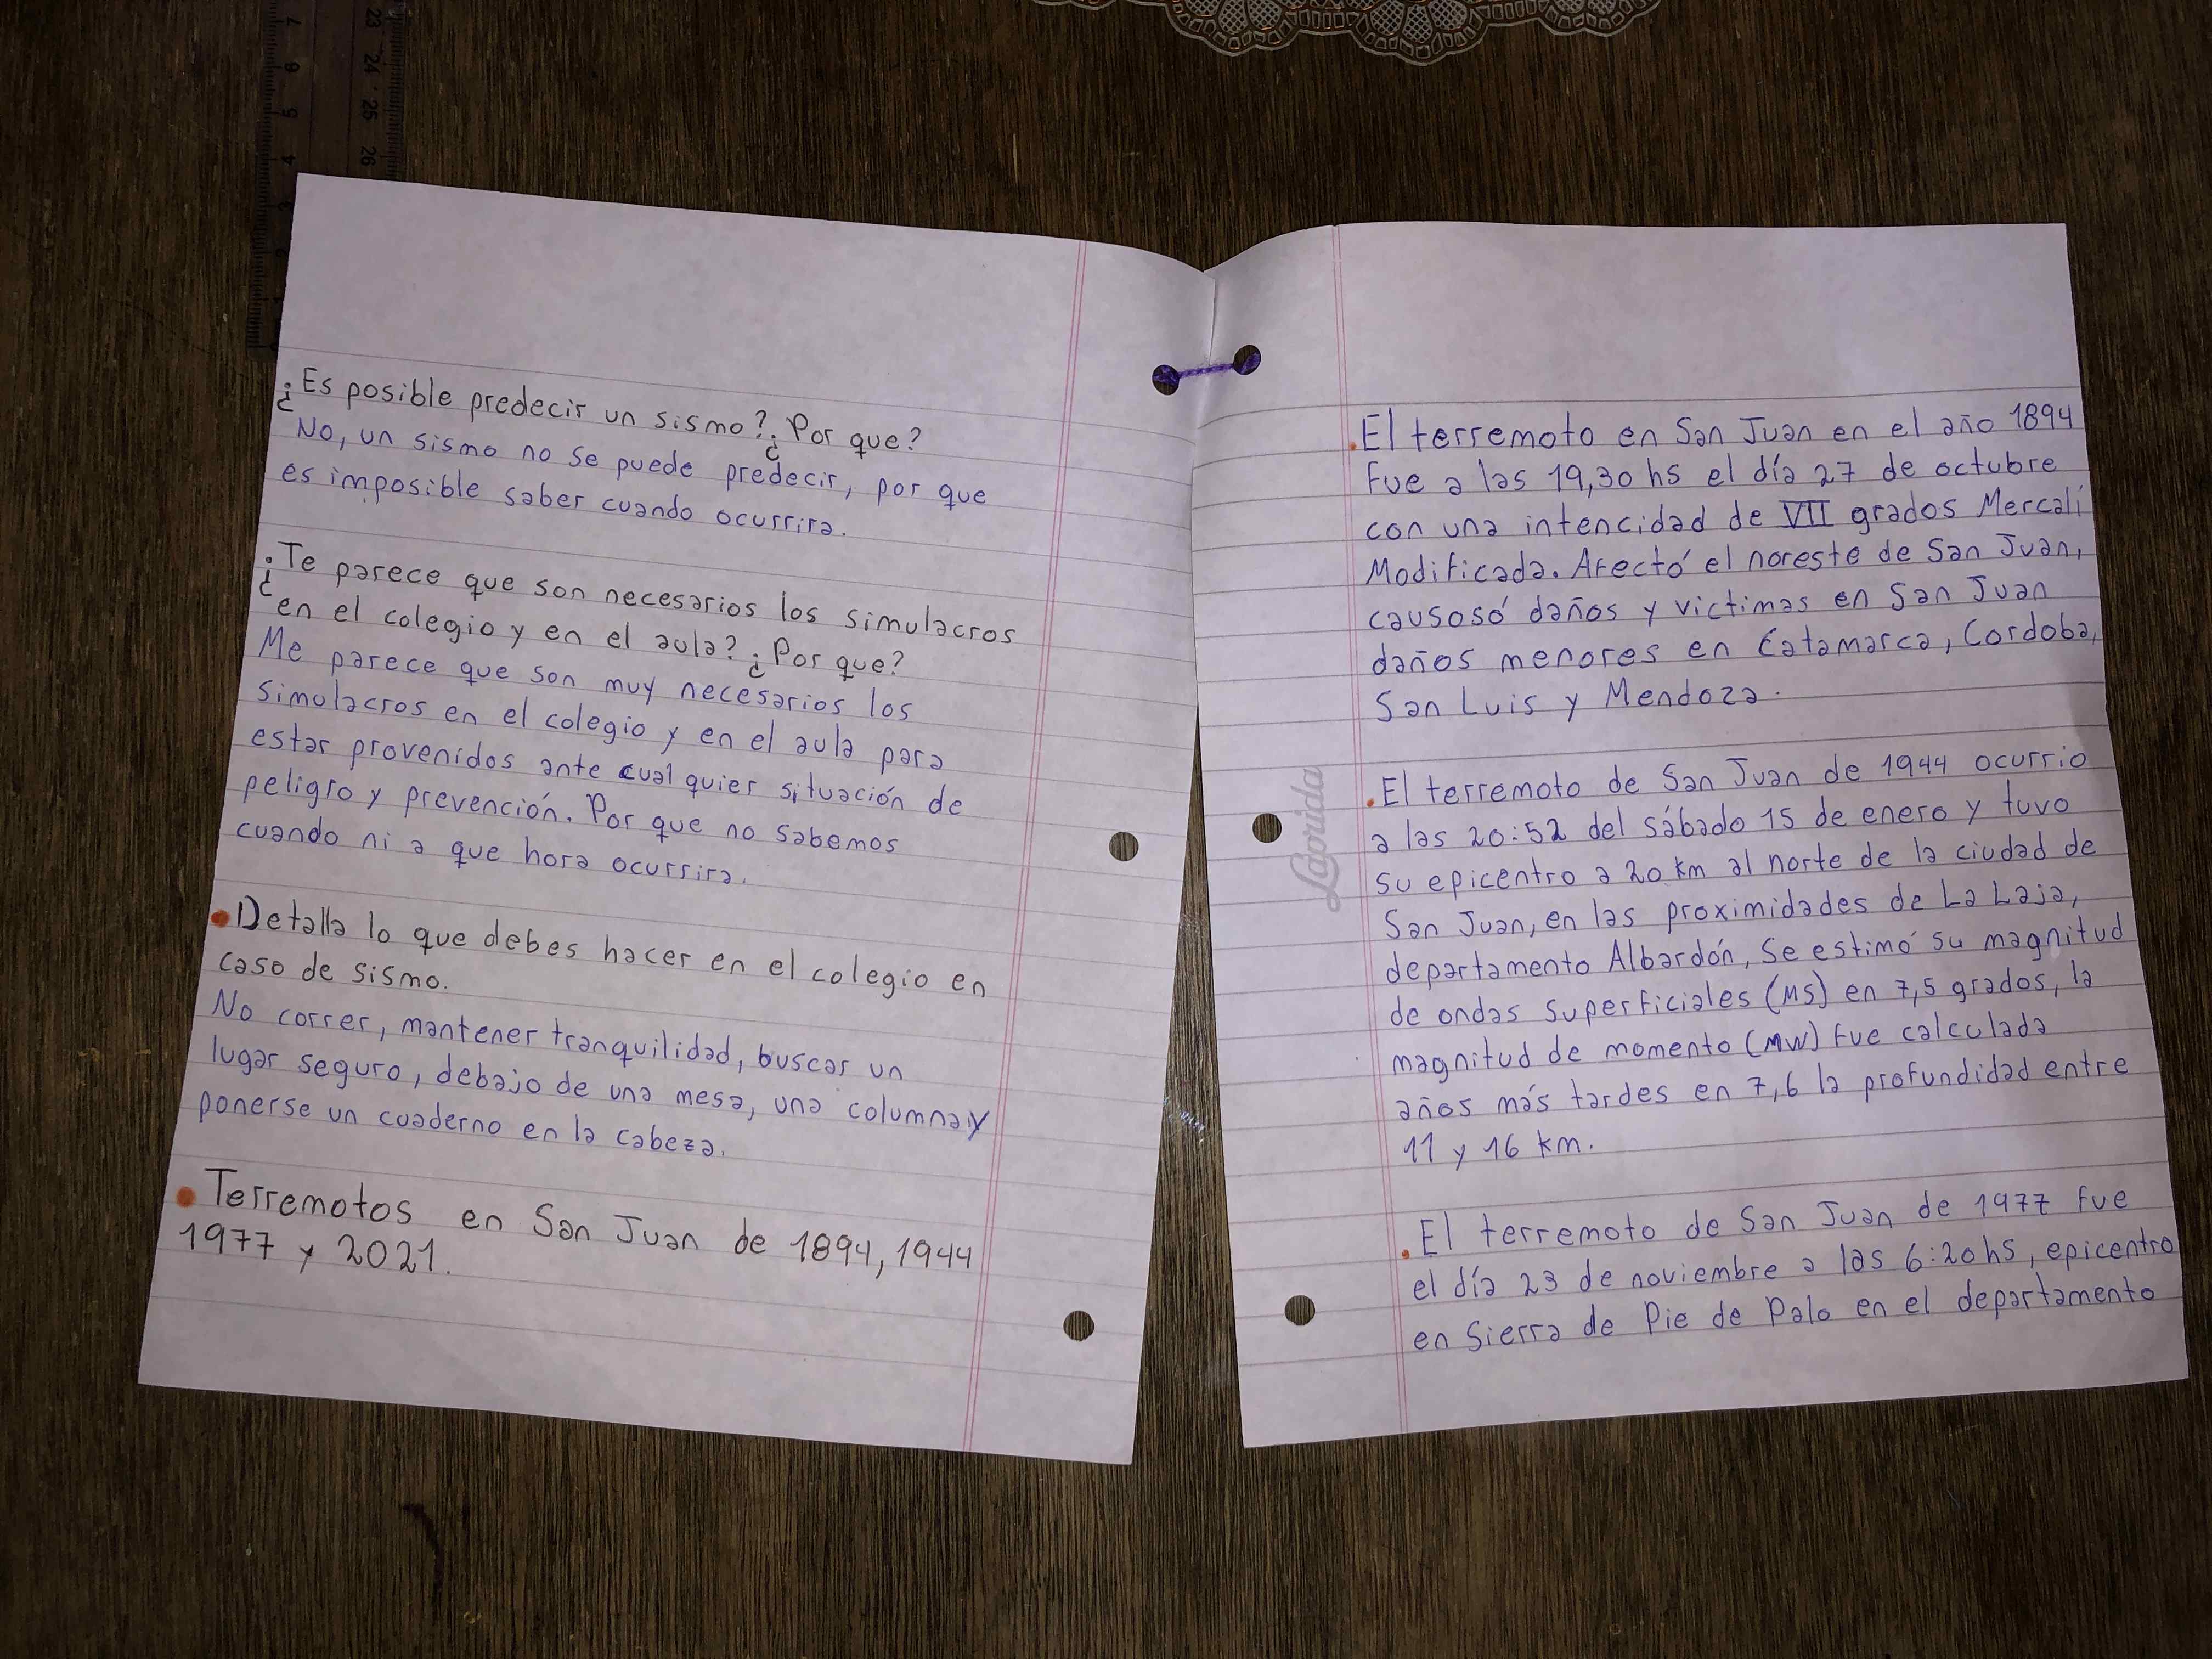 ¿Es posible predecir un sismo? ¿Por que?
No, un sismo no se puede predecir, por que
es imposible saber cuando ocurrira.
¿Te parece que son necesarios los simulacros
en el colegio y en el aula? ¿Por que?
Me parece que son muy necesarios los
simulacros en el colegio y en el aula para
estar provenidos ante cualquier situación de
peligro y prevención. Por que no sabemos
cuando ni a que hora ocurrira.
• Detalla lo que debes hacer en el colegio en
caso de sismo.
No correr, mantener tranquilidad, buscar un
lugar seguro, debajo de una mesa, una columna y
ponerse un cuaderno en la cabeza.
• Terremotos en San Juan de 1894, 1944
1977 y 2021.
. El terremoto en San Juan en el año 1894
Fue a las 19,30 hs el día 27 de octubre
con una intencidad de VII grados Mercali
Modificada. Afectó el noreste de San Juan,
causosó daños y victimas en San Juan
daños menores en Catamarca, Cordoba,
San Luis y Mendoza.
. El terremoto de San Juan de 1944 ocurrio
a las 20:52 del sábado 15 de enero y tuvo
su epicentro a 20 km al norte de la ciudad de
San Juan, en las proximidades de La Laja,
departamento Albardón, Se estimó su magnitud
de ondas superficiales (MS) en 7,5 grados, la
magnitud de momento (MW) Fue calculada
años más tardes en 7,6 la profundidad entre
11 y 16 km.
. El terremoto de San Juan de 1977 Fue
el día 23 de noviembre a las 6:20 hs, epicentro
en Sierra de Pie de Palo en el departamento
Laprida
7 6 5 4 3 2 1
23 24 25 26